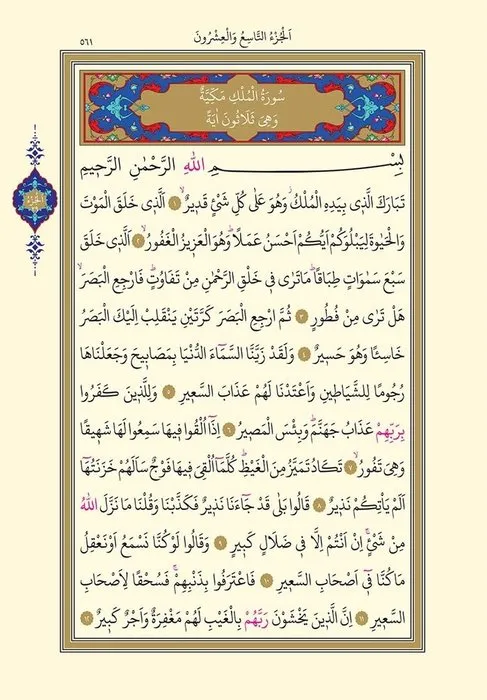 ٥٦١
اَلْجُزْءُ التَّاسِعُ وَالْعِشْرُونَ
سُورَةُ الْمُلْكِ مَكِّيَّةٌ
وَهِىَ ثَلَاثُونَ اٰيَةً
بِسْمِ اللّٰهِ الرَّحْمٰنِ الرَّحٖيمِ
تَبَارَكَ الَّذٖى بِيَدِهِ الْمُلْكُؗ وَهُوَ عَلٰى كُلِّ شَىْءٍ قَدٖيرٌۙ ﴿١﴾ اَلَّذٖى خَلَقَ الْمَوْتَ
وَالْحَيٰوةَ لِيَبْلُوَكُمْ اَيُّكُمْ اَحْسَنُ عَمَلًاؕ وَهُوَ الْعَزٖيزُ الْغَفُورُۙ ﴿٢﴾ اَلَّذٖى خَلَقَ
سَبْعَ سَمٰوَاتٍ طِبَاقًاؕ مَا تَرٰى فٖى خَلْقِ الرَّحْمٰنِ مِنْ تَفَاوُتٍؕ فَارْجِعِ الْبَصَرَۙ
هَلْ تَرٰى مِنْ فُطُورٍ ﴿٣﴾ ثُمَّ ارْجِعِ الْبَصَرَ كَرَّتَيْنِ يَنْقَلِبْ اِلَيْكَ الْبَصَرُ
خَاسِئًا وَهُوَ حَسٖيرٌ ﴿٤﴾ وَلَقَدْ زَيَّنَّا السَّمَٓاءَ الدُّنْيَا بِمَصَابٖيحَ وَجَعَلْنَاهَا
رُجُومًا لِلشَّيَاطٖينِ وَاَعْتَدْنَا لَهُمْ عَذَابَ السَّعٖيرِ ﴿٥﴾ وَلِلَّذٖينَ كَفَرُوا
بِرَبِّهِمْ عَذَابُ جَهَنَّمَؕ وَبِئْسَ الْمَصٖيرُ ﴿٦﴾ اِذَٓا اُلْقُوا فٖيهَا سَمِعُوا لَهَا شَهٖيقًا
وَهِىَ تَفُورُۙ ﴿٧﴾ تَكَادُ تَمَيَّزُ مِنَ الْغَيْظِؕ كُلَّمَٓا اُلْقِىَ فٖيهَا فَوْجٌ سَاَلَهُمْ خَزَنَتُهَٓا
اَلَمْ يَاْتِكُمْ نَذٖيرٌ ﴿٨﴾ قَالُوا بَلٰى قَدْ جَٓاءَنَا نَذٖيرٌ فَكَذَّبْنَا وَقُلْنَا مَا نَزَّلَ اللّٰهُ
مِنْ شَىْءٍۚ اِنْ اَنْتُمْ اِلَّا فٖى ضَلَالٍ كَبٖيرٍ ﴿٩﴾ وَقَالُوا لَوْ كُنَّا نَسْمَعُ اَوْ نَعْقِلُ
مَا كُنَّا فٖٓى اَصْحَابِ السَّعٖيرِ ﴿١٠﴾ فَاعْتَرَفُوا بِذَنْبِهِمْۚ فَسُحْقًا لِاَصْحَابِ
السَّعٖيرِ ﴿١١﴾ اِنَّ الَّذٖينَ يَخْشَوْنَ رَبَّهُمْ بِالْغَيْبِ لَهُمْ مَغْفِرَةٌ وَاَجْرٌ كَبٖيرٌ ﴿١٢﴾